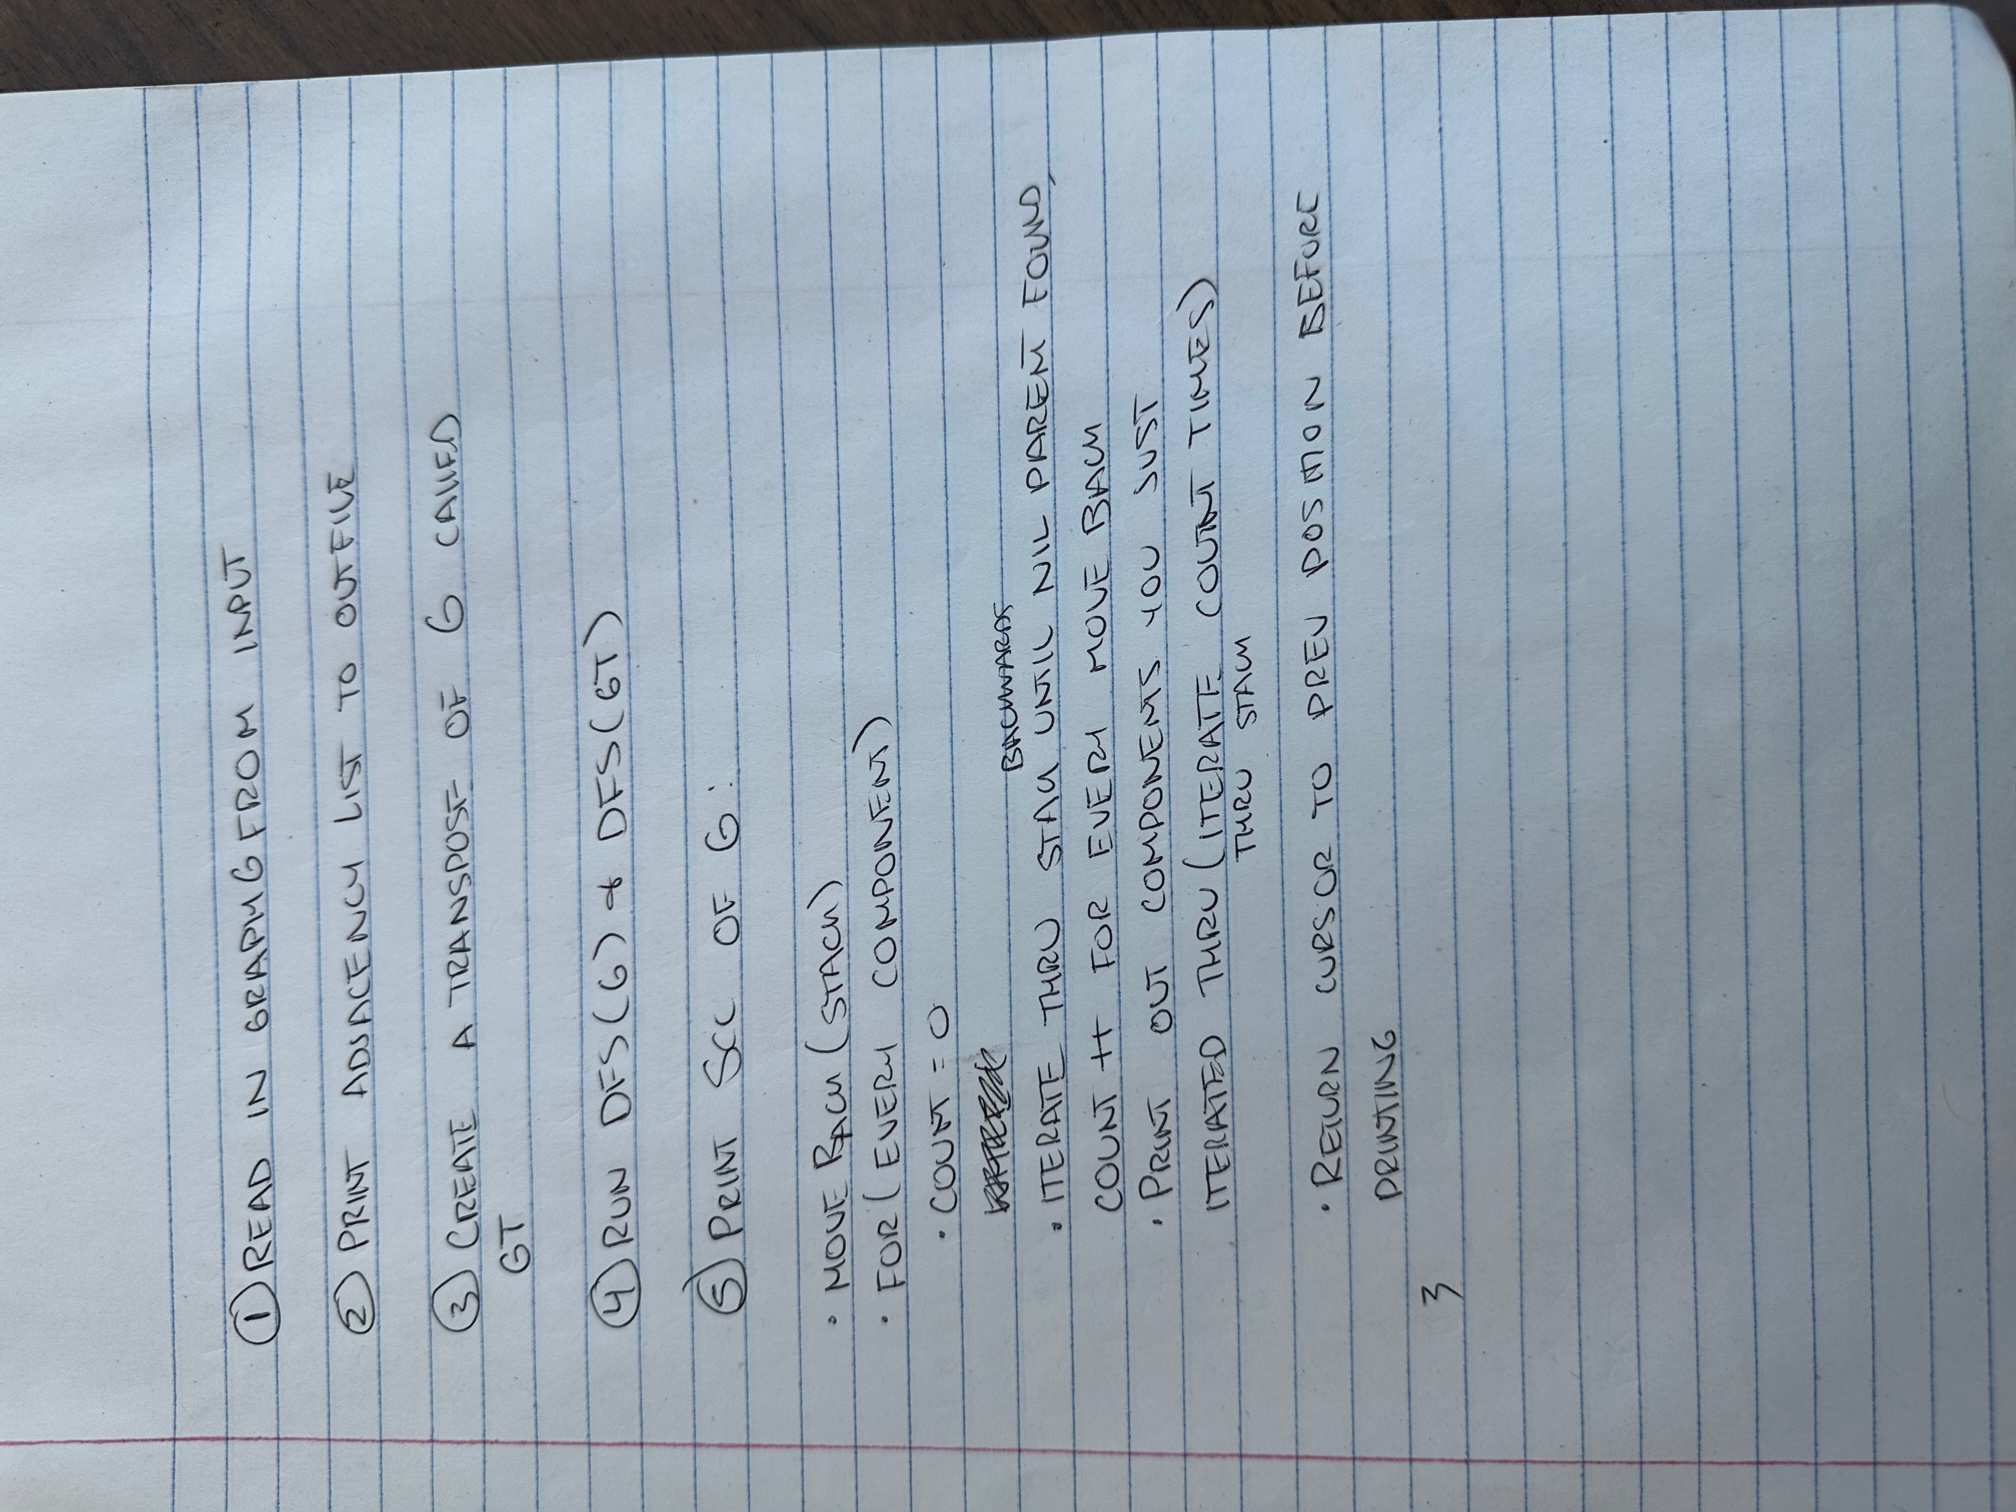 ① READ IN GRAPH G FROM INPUT
② PRINT ADJACENCY LIST TO OUTFILE
③ CREATE A TRANSPOSE OF G CALLED
GT
④ RUN DFS(G) & DFS(GT)
⑤ PRINT SCC OF G:
• MOVE BACK (STACK)
• FOR (EVERY COMPONENT)
• COUNT = 0
BACKWARDS
• ITERATE THRU STACK UNTIL NIL PARENT FOUND,
COUNT ++ FOR EVERY MOVE BACK
• PRINT OUT COMPONENTS YOU JUST
ITERATED THRU (ITERATE COUNT TIMES)
THRU STACK
• RETURN CURSOR TO PREV POSITION BEFORE
PRINTING
}